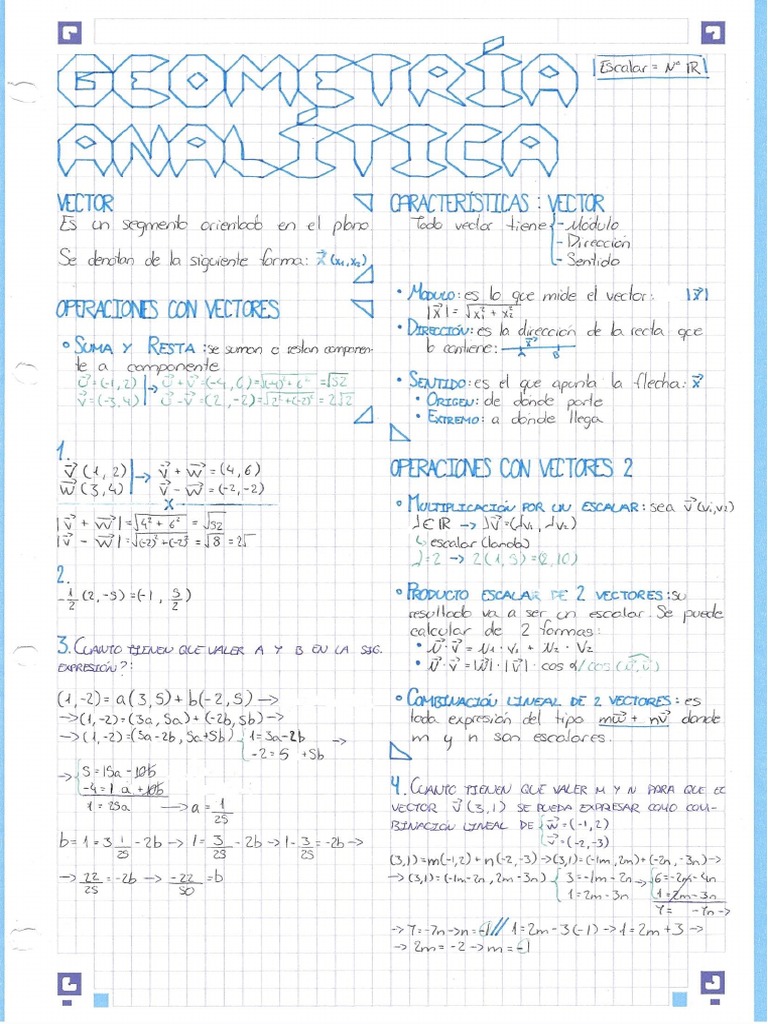 GEOMETRÍA
ANALÍTICA
Escalar = Nº IR
VECTOR
Es un segmento orientado en el plano.
Se denotan de la siguiente forma: x⃗ (x₁,x₂)
OPERACIONES CON VECTORES
• SUMA Y RESTA: se suman o restan componen-
te a componente
u⃗=(-1,2) | → u⃗+v⃗=(-4,6)=√(-4)²+6² =√52
v⃗=(-3,4) | u⃗-v⃗=(2,-2)=√2²+(-2)² = 2√2
1.
v⃗ (1,2) | → v⃗ + w⃗ = (4,6)
w⃗ (3,4) | v⃗ - w⃗ = (-2,-2)
x
|v⃗ + w⃗| = √4² + 6² = √52
|v⃗ - w⃗| = √(-2)²+(-2)² = √8 = 2√
2.
-1/2 (2,-5)=(-1, 5/2)
3. CUANTO TIENEN QUE VALER A Y B EN LA SIG.
EXPRESIÓN?:
(1,-2) = a(3,5) + b(-2,5) →
→ (1,-2) = (3a,5a) + (-2b,5b) →
→ (1,-2) = (3a-2b, 5a+5b) { 1=3a-2b →
-2=5 +5b
→ { 5=15a-10b
-4=1 a+10b
1=25a → a = 1/25
b = 1 = 3 1/25 - 2b → 1 = 3/25 - 2b → 1 - 3/25 = -2b →
→ 22/25 = -2b → -22/50 = b
CARACTERÍSTICAS: VECTOR
Todo vector tiene { - Módulo
- Dirección
- Sentido
• MODULO: es lo que mide el vector: |x⃗|
|x⃗| = √x₁² + x₂²
• DIRECCIÓN: es la dirección de la recta que
lo contiene: A x⃗ B
• SENTIDO: es el que apunta la flecha: x⃗
• ORIGEN: de donde parte
• EXTREMO: a donde llega
OPERACIONES CON VECTORES 2
• MULTIPLICACIÓN POR UN ESCALAR: sea v⃗ (v₁,v₂)
λ∈IR → λv⃗=(λv₁, λv₂)
↳ escalar (landa)
λ=2 → 2(1,5)=(2,10)
• PRODUCTO ESCALAR DE 2 VECTORES: su
resultado va a ser un escalar. Se puede
calcular de 2 formas:
• u⃗·v⃗ = u₁·v₁ + u₂·v₂
• u⃗·v⃗ = |u⃗|·|v⃗|·cos α / cos (u⃗,v⃗)
• COMBINACIÓN LINEAL DE 2 VECTORES: es
toda expresión del tipo mu⃗ + nv⃗ donde
m y n son escalores.
4. CUANTO TIENEN QUE VALER M Y N PARA QUE EL
VECTOR v⃗ (3,1) SE PUEDA EXPRESAR COMO COM-
BINACIÓN LINEAL DE { w⃗=(-1,2)
v⃗=(-2,-3)
(3,1)=m(-1,2)+n(-2,-3)→(3,1)=(-1m,2m)+(-2n,-3n)→
→(3,1)=(-1m-2n,2m-3n) { 3=-1m-2n → { 6=-2m-4n
1=2m-3n 1=2m-3n
7= -7n→
→7=-7n→n=-1// 1=2m-3(-1)→1=2m+3→
→2m=-2→m=-1